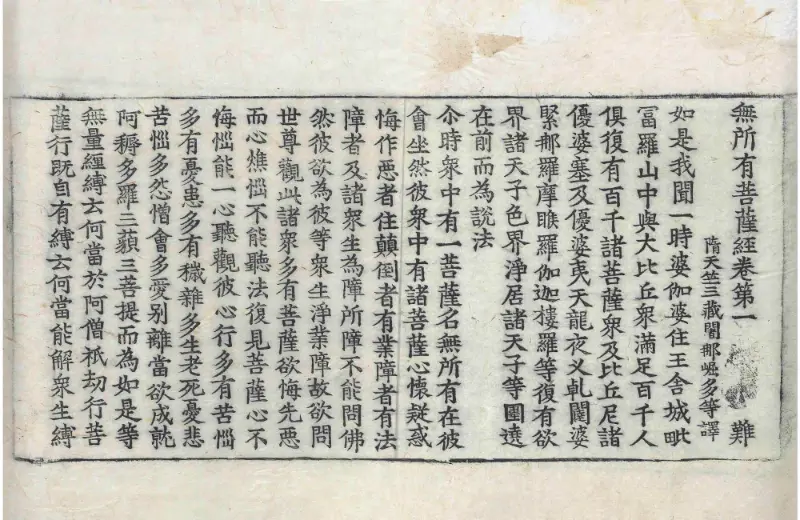 無所有菩薩經卷第一 難
隋天竺三藏闍那崛多等譯
如是我聞一時婆伽婆住王舍城毗
富羅山中與大比丘衆滿足百千人
俱復有百千諸菩薩衆及比丘尼諸
優婆塞及優婆夷天龍夜叉乹闥婆
緊那羅摩睺羅伽迦樓羅等復有欲
界諸天子色界淨居諸天子等圍遶
在前而為說法
尒時衆中有一菩薩名無所有在彼
會坐然彼衆中有諸菩薩心懷疑惑
悔作惡者住顛倒者有業障者有法
障者及諸衆生為障所障不能問佛
然彼欲為彼等衆生淨業障故欲問
世尊觀此諸衆多有菩薩欲悔先惡
而心燋惱不能聽法復見菩薩心不
悔惱能一心聽觀彼心行多有苦惱
多有憂患多有穢雜多生老死憂悲
苦惱多怨憎會多愛别離當欲成就
阿耨多羅三藐三菩提而為如是等
無量經縛云何當於阿僧祇劫行菩
薩行既自有縛云何當能解衆生縛